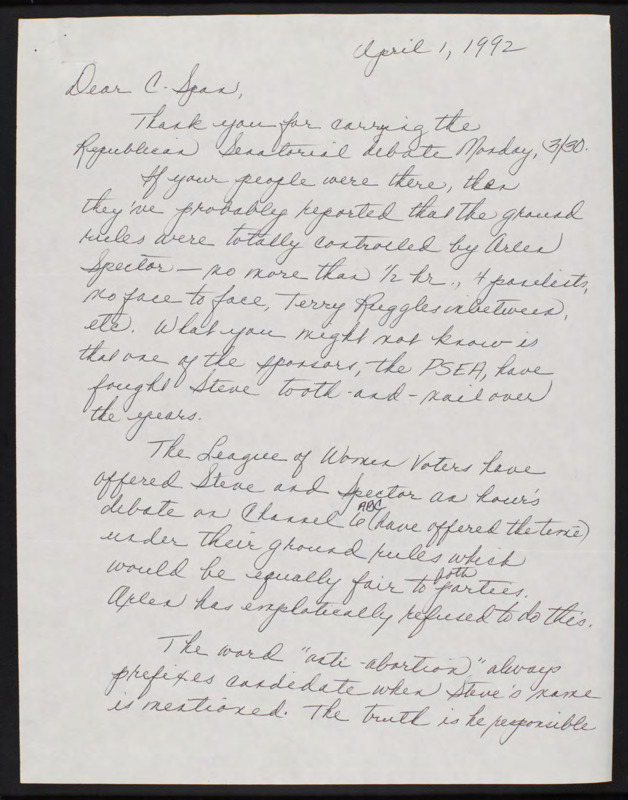 April 1, 1992
Dear C-Span,
Thank you for carrying the
Republican Senatorial debate Monday, 3/30.
If your people were there, then
they've probably reported that the ground
rules were totally controlled by Arlen
Spector — no more than 1/2 hr., 4 panelists,
no face to face, Terry Ruggles inbetween,
etc. What you might not know is
that one of the sponsors, the PSEA, have
fought Steve tooth-and-nail over
the years.
The League of Women Voters have
offered Steve and Spector an hour's
debate on Channel 6 (ABC have offered the time)
under their ground rules which
would be equally fair to both parties.
Arlen has emphatically refused to do this.
The word "anti-abortion" always
prefixes candidate when Steve's name
is mentioned. The truth is he responsible